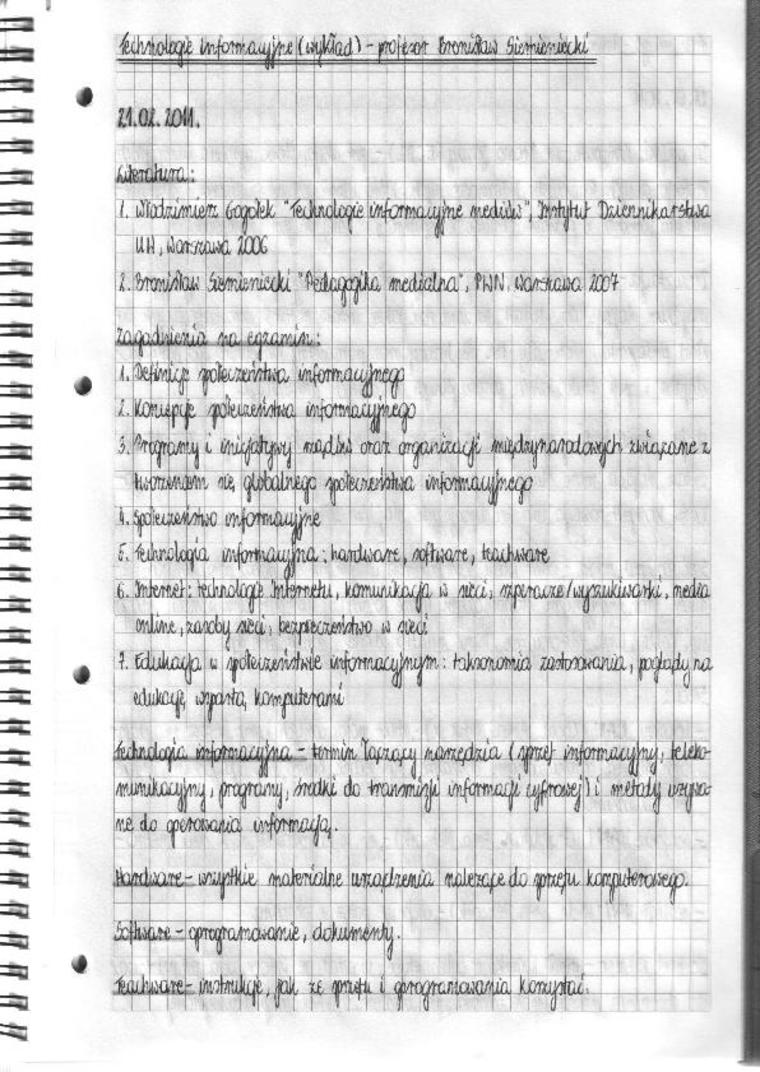 Technologie informacyjne (wykład) - profesor Bronisław Siemieniecki
21.02.2011.
Literatura:
1. Włodzimierz Gogołek "Technologie informacyjne mediów", Instytut Dziennikarstwa
UW, Warszawa 2006
2. Bronisław Siemieniecki "Pedagogika medialna", PWN, Warszawa 2007
Zagadnienia na egzamin:
1. Definicje społeczeństwa informacyjnego
2. Koncepcje społeczeństwa informacyjnego
3. Programy i inicjatywy rządów oraz organizacji międzynarodowych związane z
tworzeniem się globalnego społeczeństwa informacyjnego
4. Społeczeństwo informacyjne
5. Technologia informacyjna: hardware, software, teachware
6. Internet: technologie Internetu, komunikacja w sieci, szperacze/wyszukiwarki, media
online, zasoby sieci, bezpieczeństwo w sieci
7. Edukacja w społeczeństwie informacyjnym: taksonomia zastosowania, poglądy na
edukację wspartą komputerami
Technologia informacyjna - termin łączący narzędzia (sprzęt informacyjny, teleko-
munikacyjny, programy, środki do transmisji informacji cyfrowej) i metody używa-
ne do operowania informacją.
Hardware - wszystkie materialne urządzenia należące do sprzętu komputerowego.
Software - oprogramowanie, dokumenty.
Teachware - instrukcje, jak ze sprzętu i oprogramowania korzystać.